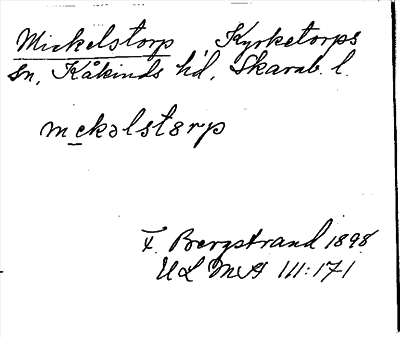 Mickelstorp Kyrketorps
sn, Kåkinds hd, Skarab. l.
mekəlstɵrp
F. Bergstrand 1898
ULMA 111:171